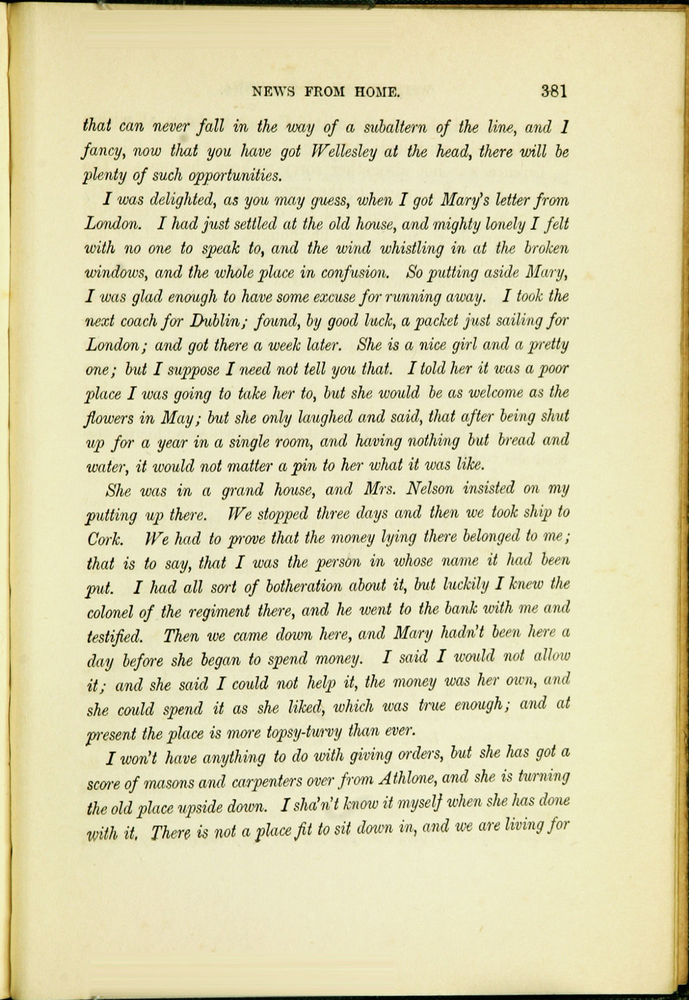 NEWS FROM HOME. 381
that can never fall in the way of a subaltern of the line, and I
fancy, now that you have got Wellesley at the head, there will be
plenty of such opportunities.
I was delighted, as you may guess, when I got Mary's letter from
London. I had just settled at the old house, and mighty lonely I felt
with no one to speak to, and the wind whistling in at the broken
windows, and the whole place in confusion. So putting aside Mary,
I was glad enough to have some excuse for running away. I took the
next coach for Dublin; found, by good luck, a packet just sailing for
London; and got there a week later. She is a nice girl and a pretty
one; but I suppose I need not tell you that. I told her it was a poor
place I was going to take her to, but she would be as welcome as the
flowers in May; but she only laughed and said, that after being shut
up for a year in a single room, and having nothing but bread and
water, it would not matter a pin to her what it was like.
She was in a grand house, and Mrs. Nelson insisted on my
putting up there. We stopped three days and then we took ship to
Cork. We had to prove that the money lying there belonged to me;
that is to say, that I was the person in whose name it had been
put. I had all sort of botheration about it, but luckily I knew the
colonel of the regiment there, and he went to the bank with me and
testified. Then we came down here, and Mary hadn't been here a
day before she began to spend money. I said I would not allow
it; and she said I could not help it, the money was her own, and
she could spend it as she liked, which was true enough; and at
present the place is more topsy-turvy than ever.
I won't have anything to do with giving orders, but she has got a
score of masons and carpenters over from Athlone, and she is turning
the old place upside down. I sha'n't know it myself when she has done
with it. There is not a place fit to sit down in, and we are living for